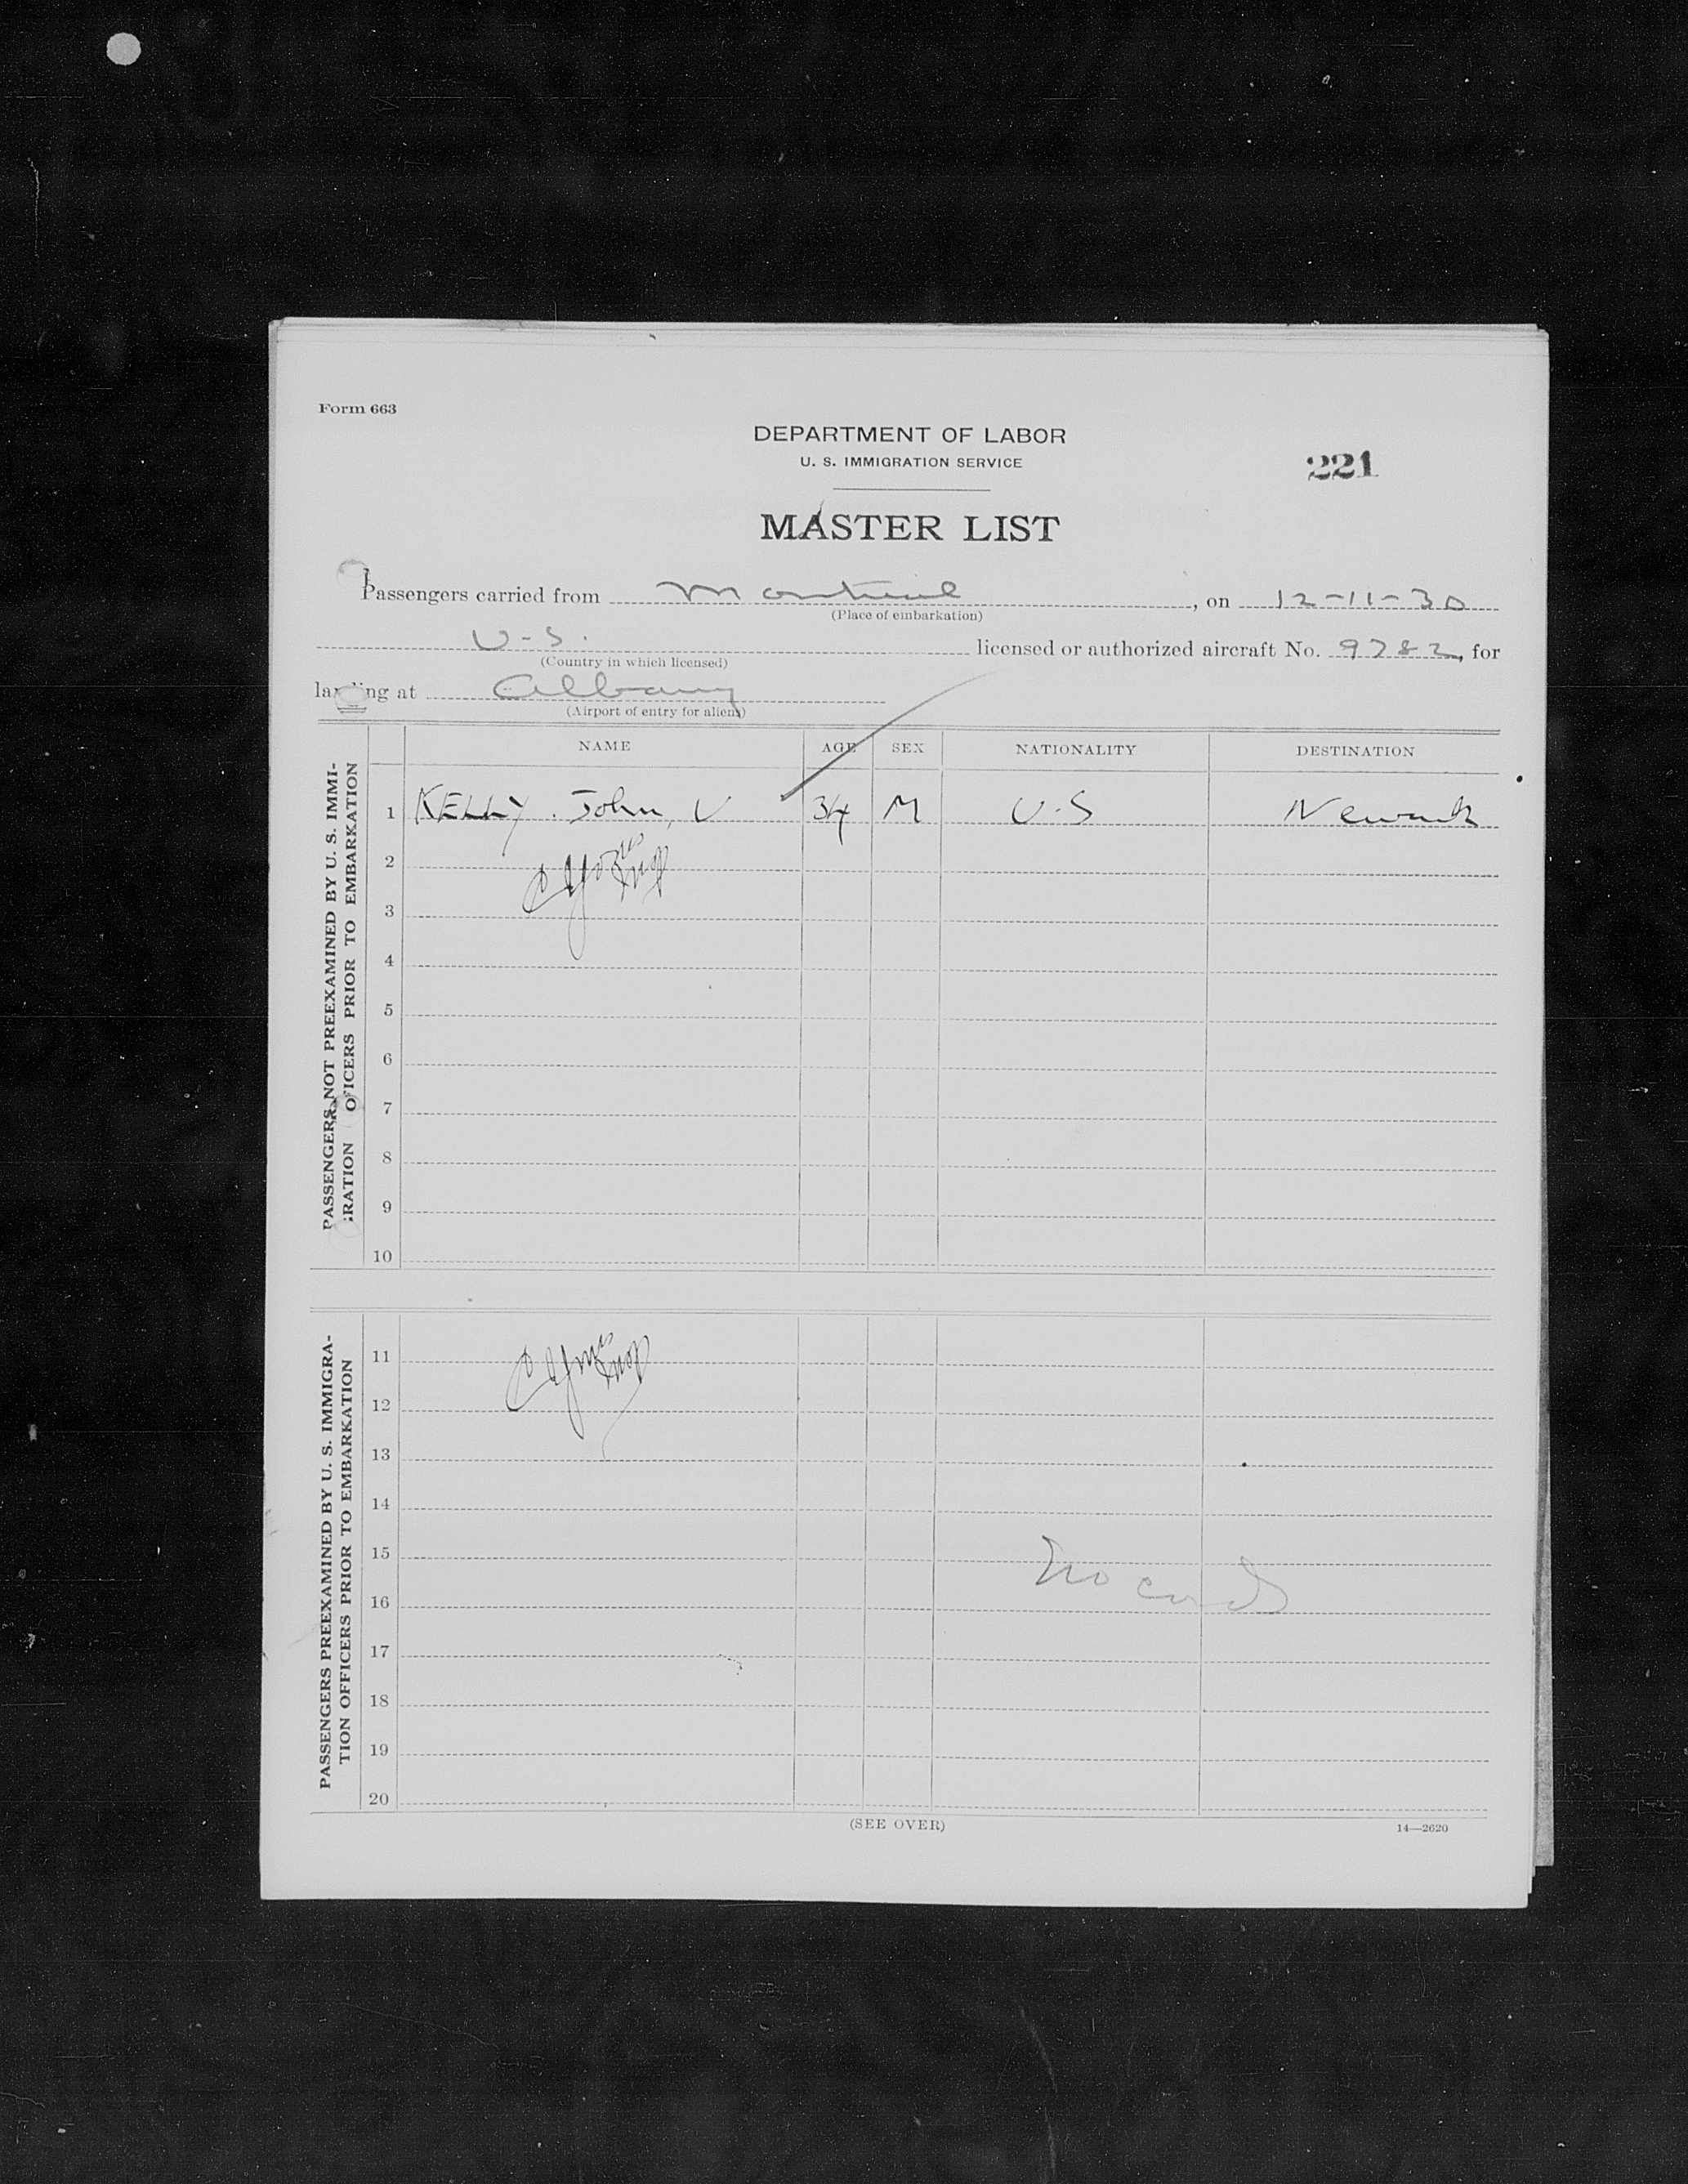 Form 663
DEPARTMENT OF LABOR
U. S. IMMIGRATION SERVICE
221
MASTER LIST
Passengers carried from Montreal, on 12-11-30
(Place of embarkation)
U-S. licensed or authorized aircraft No. 9782, for
(Country in which licensed)
landing at Albany
(Airport of entry for aliens)
NAME AGE SEX NATIONALITY DESTINATION
PASSENGERS NOT PREEXAMINED BY U. S. IMMI-
GRATION OFFICERS PRIOR TO EMBARKATION
1 KELLY. John, V 34 M U-S Newark
2
3
4
5
6
7
8
9
10
PASSENGERS PREEXAMINED BY U. S. IMMIGRA-
TION OFFICERS PRIOR TO EMBARKATION
11
12
13
14
15
No cards
16
17
18
19
20
(SEE OVER)
14—2620